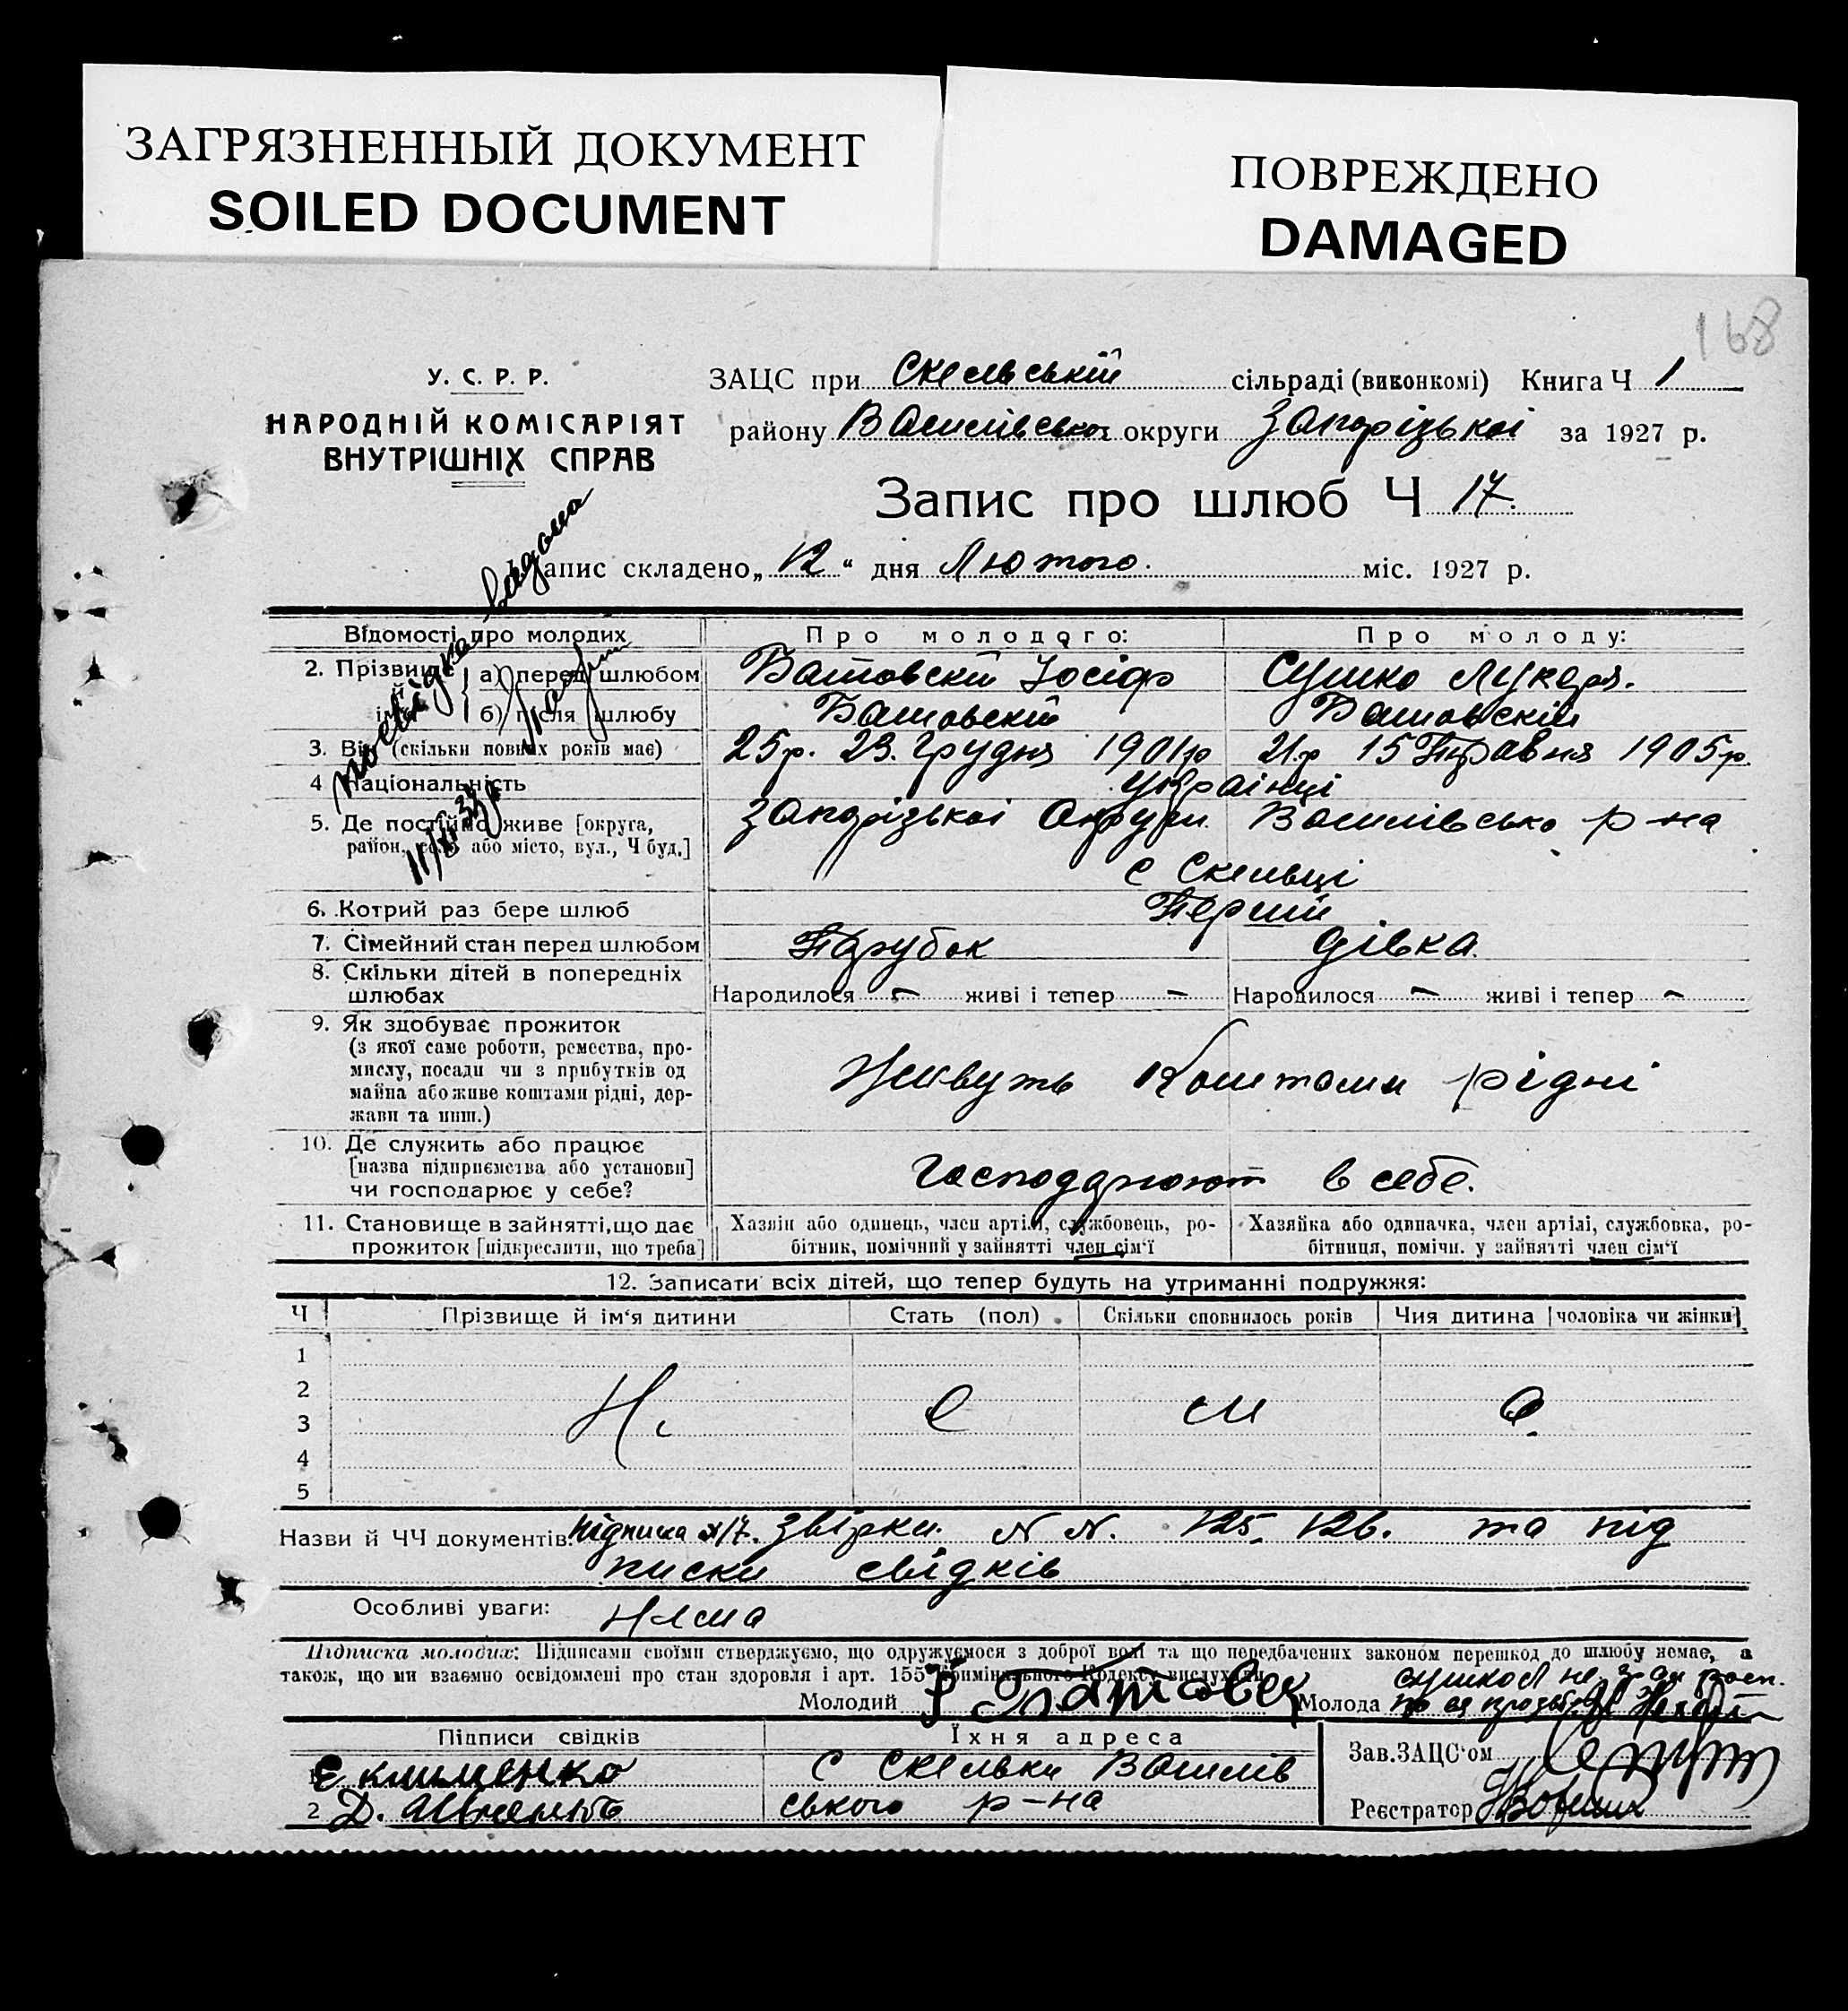 ЗАГРЯЗНЕННЫЙ ДОКУМЕНТ
SOILED DOCUMENT
ПОВРЕЖДЕНО
DAMAGED
168
У. С. Р. Р.
НАРОДНІЙ КОМІСАРІЯТ
ВНУТРІШНІХ СПРАВ
ЗАЦС при Скельській сільраді (виконкомі) Книга Ч 1
району Василівської округи Запорізької за 1927 р.
Запис про шлюб Ч 17.
Запис складено „12“ дня Лютого. міс. 1927 р.
посвідка видана
Відомості про молодих Про молодого: Про молоду:
2. Прізвище й ім'я { а) перед шлюбом Батовскій Іосіф Сушко Лукеря.
б) після шлюбу Батовскій Батовскій
3. Вік (скільки повних років має) 25 р. 23. Грудня 1901 р 21 р 15 Травня 1905 р.
4 Національність Українці
5. Де постійно живе [округа, район, село або місто, вул., Ч буд.] Запорізької Округи Василівсько р-на
с Скельці
6. Котрий раз бере шлюб Перший
7. Сімейний стан перед шлюбом Парубок дівка.
8. Скільки дітей в попередніх шлюбах Народилося — живі і тепер — Народилося — живі і тепер —
9. Як здобуває прожиток
(з якої саме роботи, ремества, про-
мислу, посади чи з прибутків од
майна або живе коштами рідні, дер-
жави та инш.)
Живуть Коштами рідні
10. Де служить або працює
[назва підприємства або установи]
чи господарює у себе?
Господарюют в себе.
11. Становище в зайнятті, що дає
прожиток [підкреслити, що треба]
Хазяїн або одинець, член артілі, службовець, ро-
бітник, помічний у зайнятті член сім'ї
Хазяйка або одиначка, член артілі, службовка, ро-
бітниця, помічн. у зайнятті член сім'ї
12. Записати всіх дітей, що тепер будуть на утриманні подружжя:
Ч Прізвище й ім'я дитини Стать (пол) Скільки сповнилось років Чия дитина [чоловіка чи жінки]
1
2
3
4
5
Н е м а
Назви й ЧЧ документів: Підписка №17. Звірки. N N. 125, 126. та під
писки свідків
Особливі уваги: Нема
Підписка молодих: Підписами своїми стверджуємо, що одружуємося з доброї волі та що передбачених законом перешкод до шлюбу немає, а
також, що ми взаємно освідомлені про стан здоровля і арт. 155 Кримінального Кодексу вислухали
Молодий Батовск Молода Сушко
Підписи свідків Їхня адреса
1 Е Клименко С Скельки Василів
2 Д. ського р-на
Зав. ЗАЦС'ом
Реєстратор